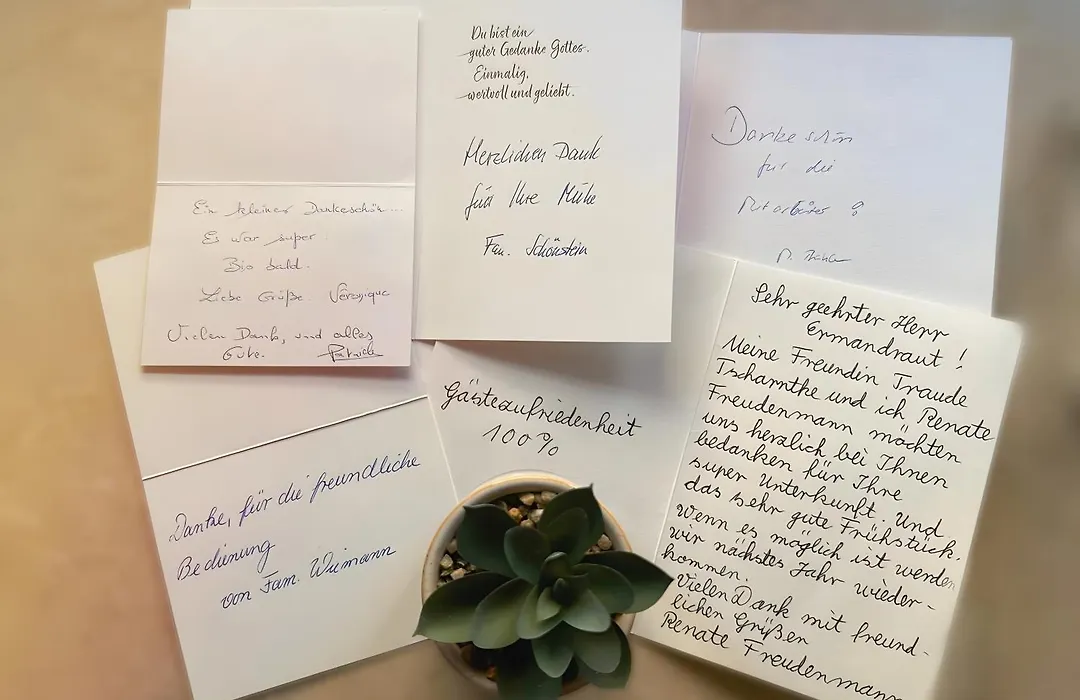 Ein kleines Dankeschön...
Es war super.
Bis bald.
Liebe Grüße Véronique
Vielen Dank, und alles
Gute. Patrick
Du bist ein
guter Gedanke Gottes.
Einmalig,
wertvoll und geliebt.
Herzlichen Dank
für Ihre Mühe
Fam. Schönstein
Dankeschön
für die
Mitarbeiter
Danke, für die freundliche
Bedienung
von Fam. Wiemann
Gästezufriedenheit
100%
Sehr geehrter Herr
Ermandraut !
Meine Freundin Traude
Tscharntke und ich Renate
Freudenmann möchten
uns herzlich bei Ihnen
bedanken für Ihre
super Unterkunft. Und
das sehr gute Frühstück.
Wenn es möglich ist werden
wir nächstes Jahr wieder-
kommen.
Vielen Dank mit freund-
lichen Grüßen
Renate Freudenmann